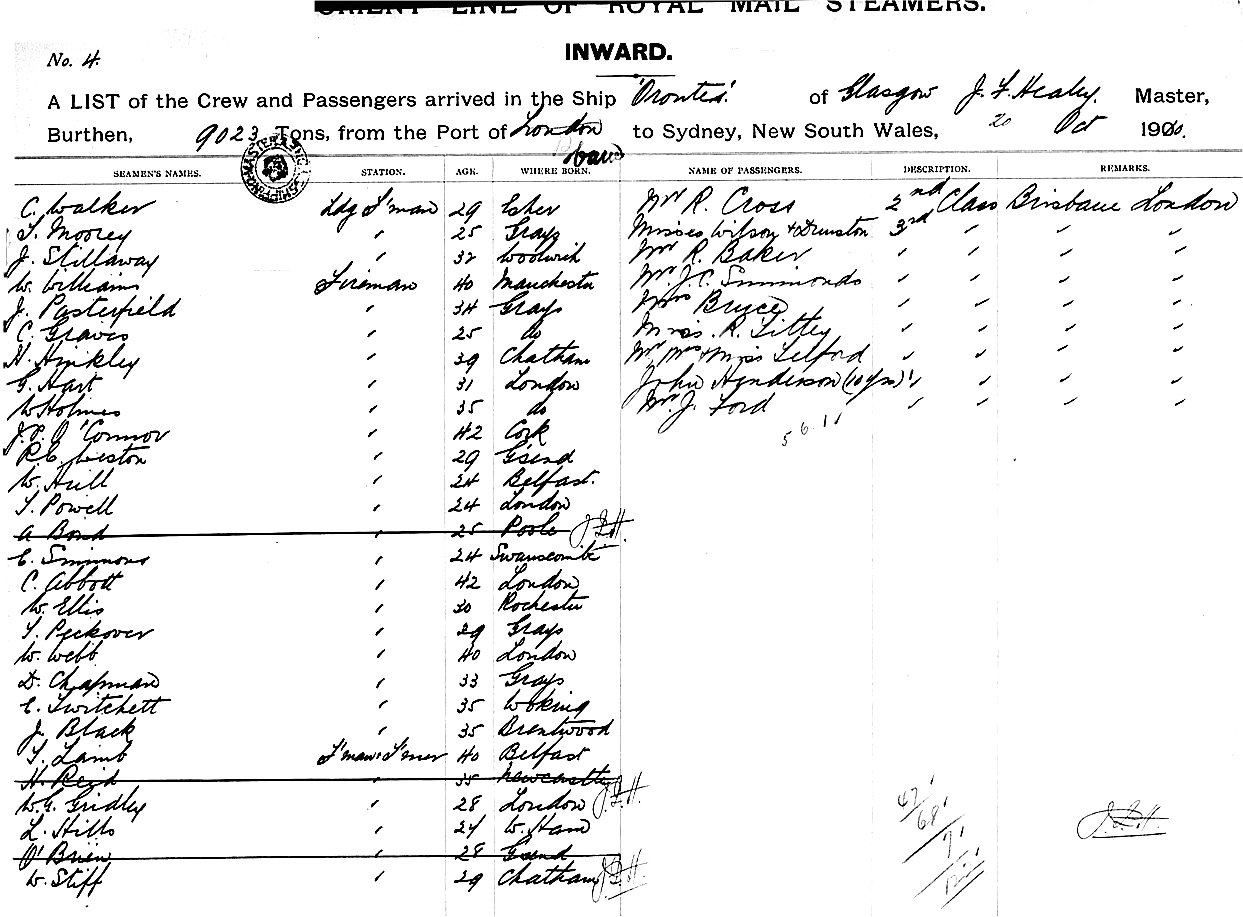 ORIENT LINE OF ROYAL MAIL STEAMERS.
No. 4.
INWARD.
A LIST of the Crew and Passengers arrived in the Ship 'Orontes'. of Glasgow J. F. Healey. Master,
Burthen, 9023 Tons, from the Port of London to Sydney, New South Wales, 20 Oct 1906.
SEAMEN'S NAMES. STATION. AGE. WHERE BORN. NAME OF PASSENGERS. DESCRIPTION. REMARKS.
C. Walker Ldg F'man 29 Esher Mr R. Cross 2nd Class Brisbane London
T. Moorey " 25 Grays Misses Wilson + 3rd " " "
J. Stillaway " 32 Woolwich Mr R. Baker " " " "
W. Williams Fireman 40 Manchester Mr J.C. Simmonds " " " "
J. Pasterfield " 34 Grays Mrs Bryce " " " "
C. Graves " 25 do Miss. R. Tittey " " " "
H. Hinkley " 39 Chatham Mr Mrs + Miss Telford " " " "
G. Hart " 31 London John Henderson (10 yrs) " " " "
W Holmes " 35 do Mr J. Ford " " " "
J.P. O'Connor " 42 Cork 5 6. 11
R.C. Weston " 29 G'send
W. Hull " 24 Belfast.
T. Powell " 24 London
A Bond " 25 Poole J.F.H.
E. Simmons " 24 Swanscombe
C. Abbott " 42 London
W. Ellis " 30 Rochester
T. Peckover " 29 Grays
W. Webb " 40 London
D. Chapman " 33 Grays
E. Twitchett " 35 Woking
J. Black " 35 Brentwood
T. Lamb F'man + T'mer 40 Belfast
H. Reid " 35 Newcastle J.F.H.
W.G. Gridley " 28 London 42 / 68
L. Hills " 24 W. Ham J.F.H.
O'Brien 28 Gsend
W. Stiff " 29 Chatham J.F.H.